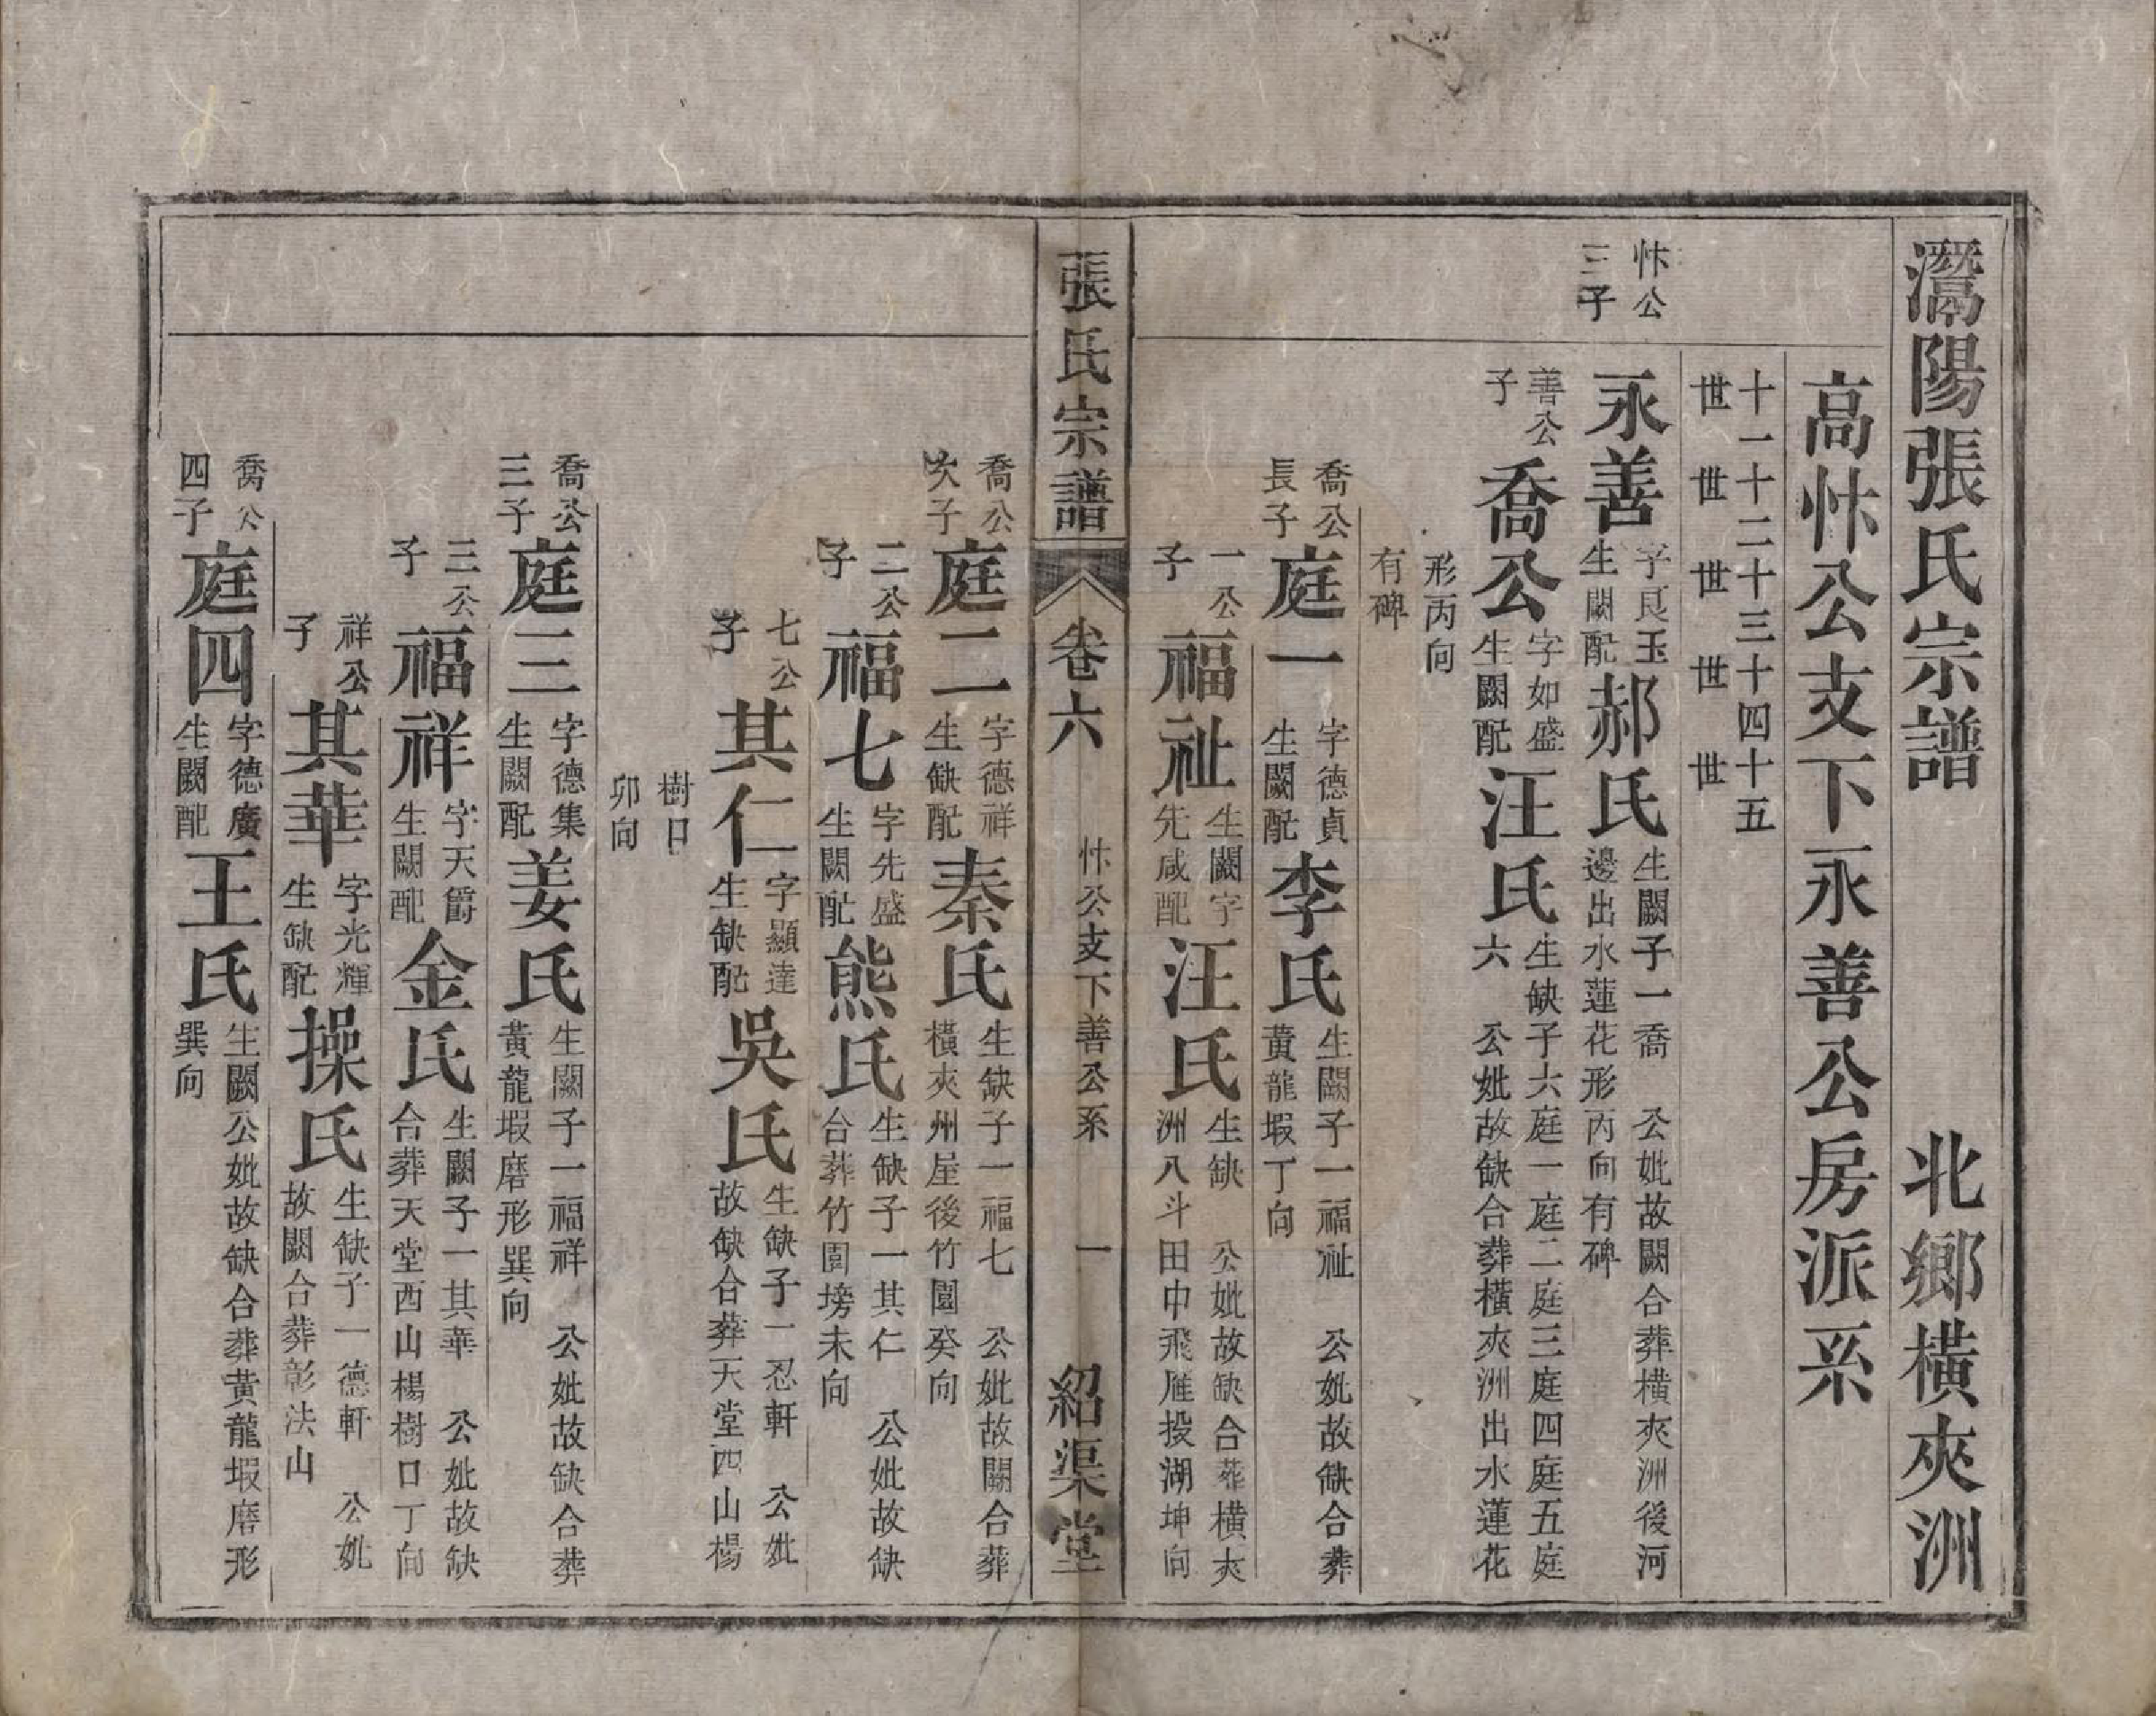 灊陽張氏宗譜 北鄉橫夾洲
高怵公支下永善公房派系
十一世 十二世 十三世 十四世 十五世
怵公三子
永善 字良玉生闕配 郝氏 生闕子一喬 公妣故闕合葬横夾洲後河邊出水蓮花形丙向有碑
善公子 喬公 字如盛生闕配 汪氏 生缺子六庭一庭二庭三庭四庭五庭六 公妣故缺合葬橫夾洲出水蓮花
形丙向有碑
喬公長子 庭一 字德貞生闕配 李氏 生闕子一福祉 公妣故缺合葬黃龍塅丁向
一公子 福祉 生闕字先咸配 汪氏 生缺 公妣故缺合葬橫夾洲八斗田中飛雁投湖坤向
張氏宗譜 卷六 怵公支下善公系 一 紹渠堂
喬公次子 庭二 字德祥生缺配 秦氏 生缺子一福七 公妣故闕合葬橫夾州屋後竹園癸向
二公子 福七 字先盛生闕配 熊氏 生缺子一其仁 公妣故缺合葬竹園塝未向
七公子 其仁 字顯達生缺配 吳氏 生缺子一忍軒 公妣故缺合葬天堂西山楊
樹口卯向
喬公三子 庭三 字德集生闕配 姜氏 生闕子一福祥 公妣故缺合葬黃龍塅磨形巽向
三公子 福祥 字天爵生闕配 金氏 生闕子一其華 公妣故缺合葬天堂西山楊樹口丁向
祥公子 其華 字光輝生缺配 操氏 生缺子一德軒 公妣故闕合葬彰法山
喬公四子 庭四 字德廣生闕配 王氏 生闕公妣故缺合葬黃龍塅磨形巽向